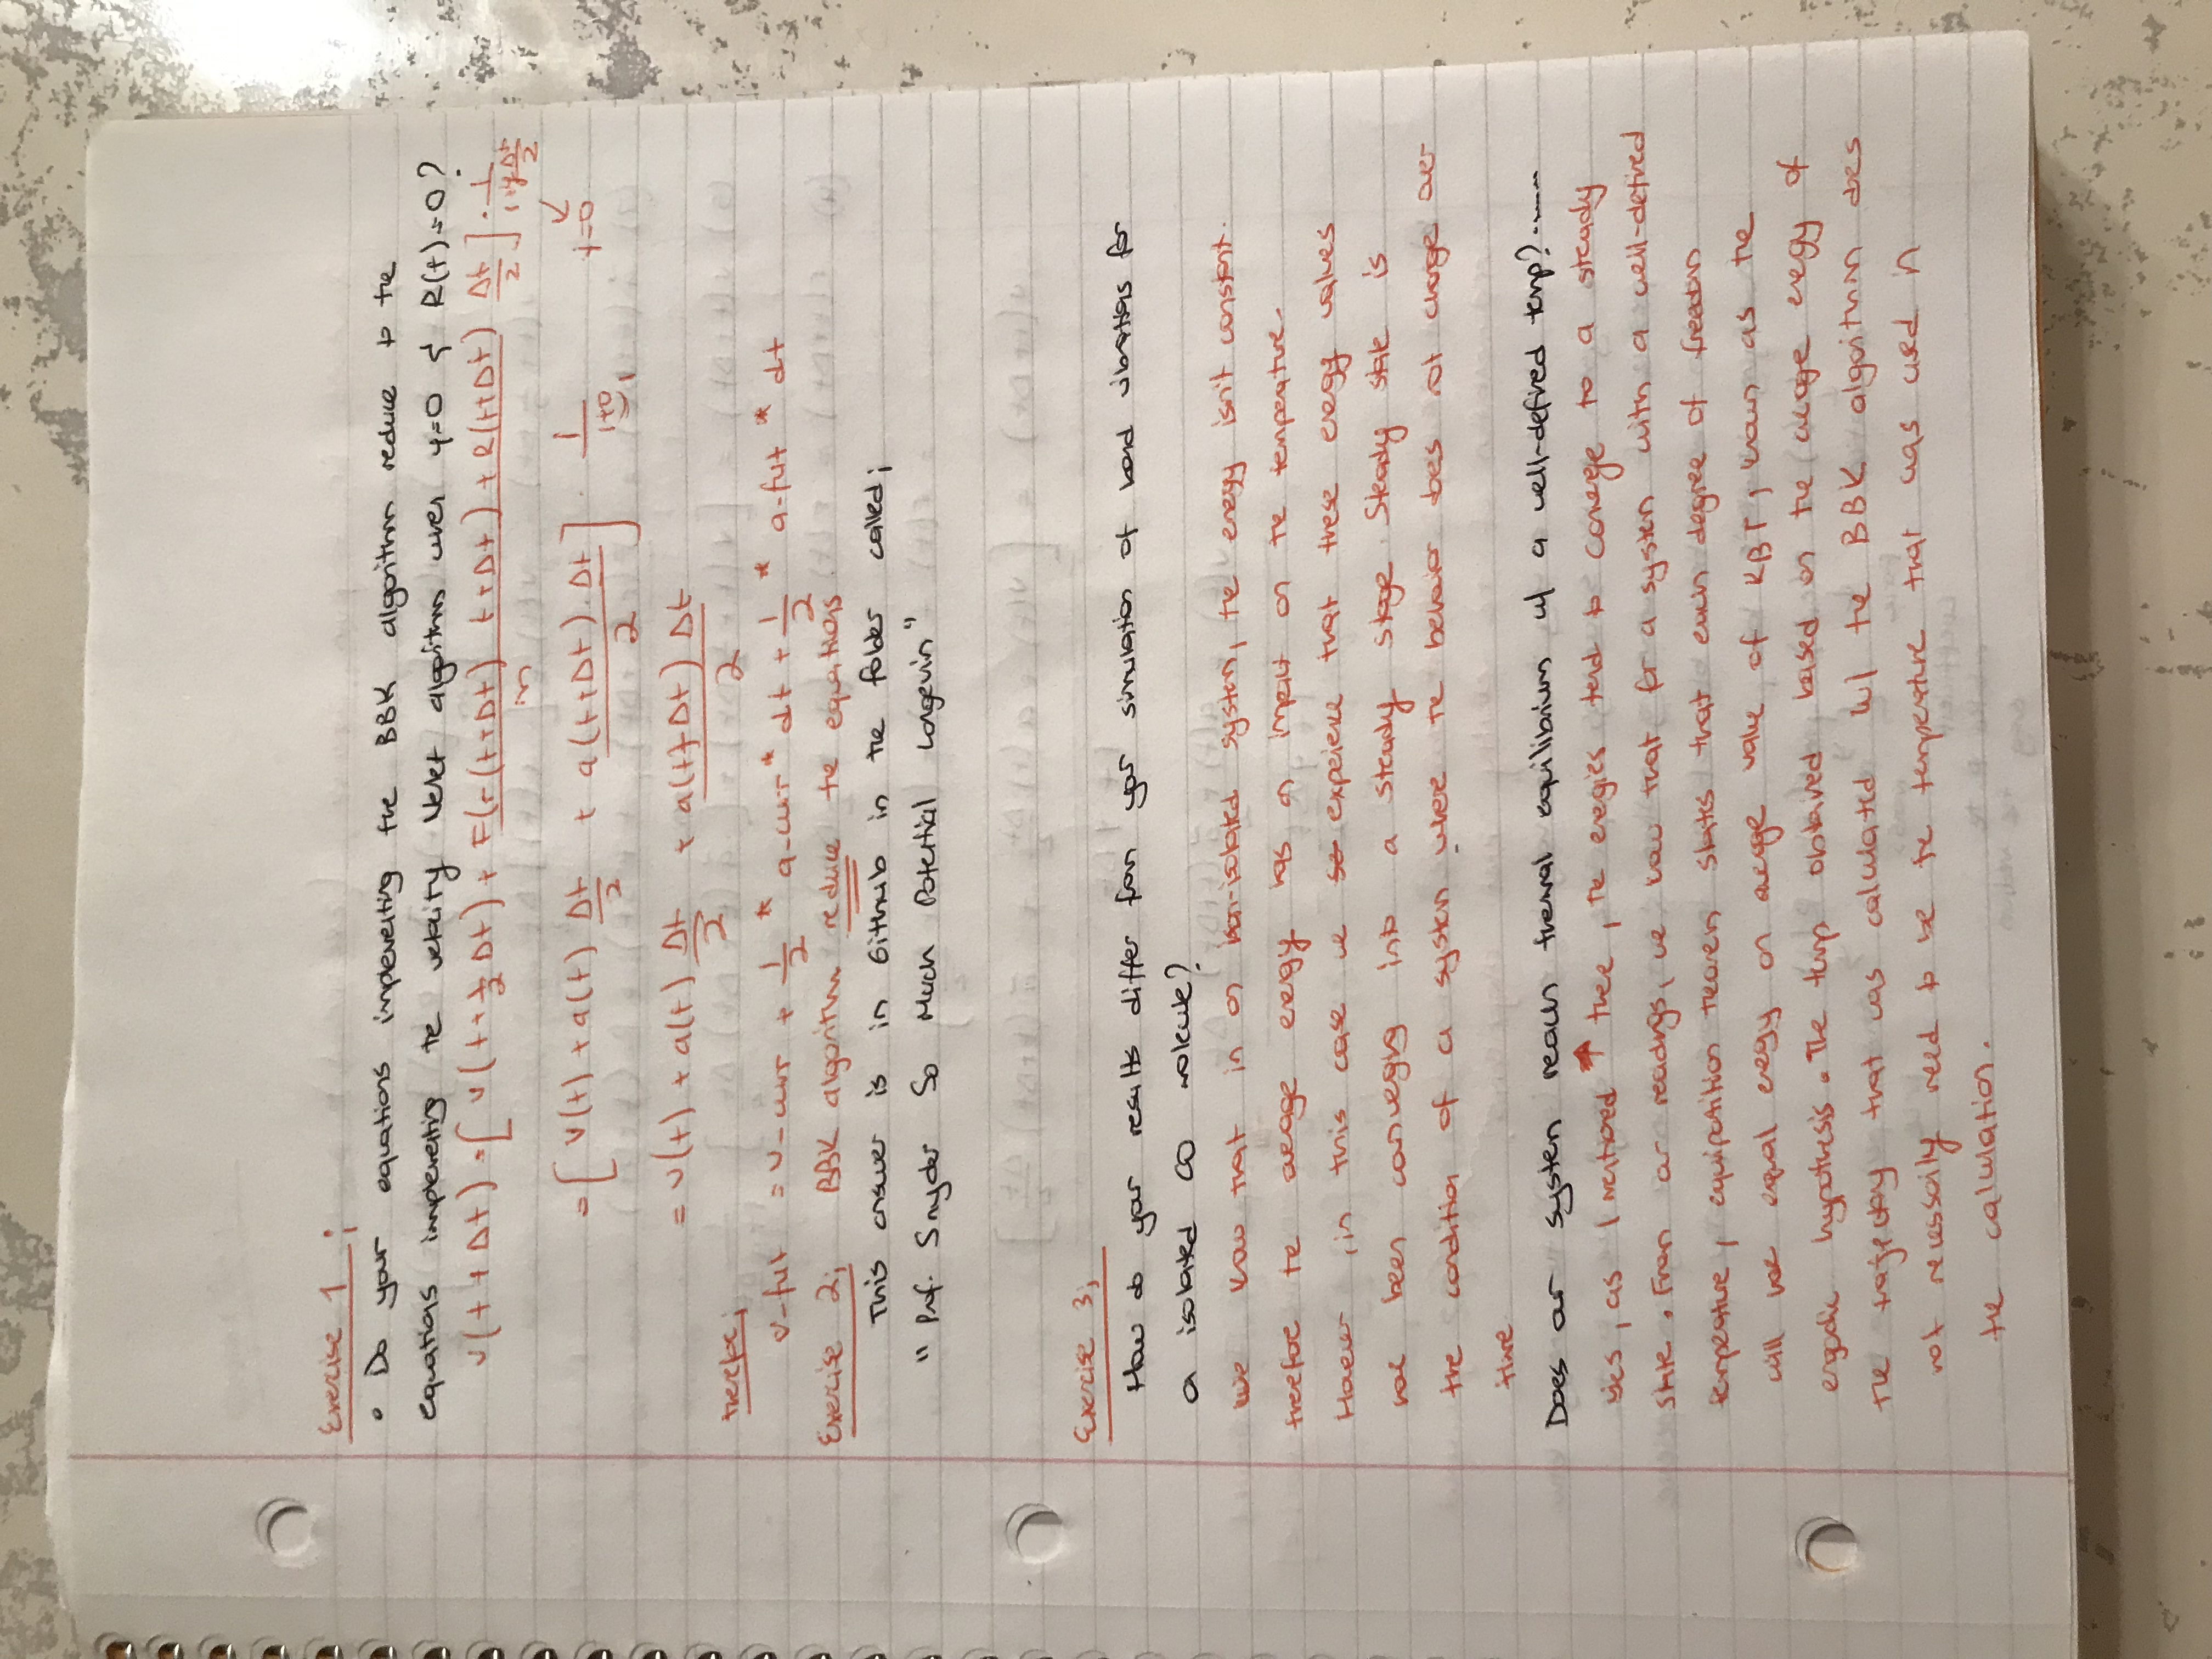 Exercise 1;
• Do your equations implementing the BBK algorithm reduce to the
equations implementing the velocity Verlet algorithm when γ=0 & R(t)=0?
v(t+Δt) = [ v(t+½Δt) + F(r(t+Δt) t+Δt) + R(t+Δt) / m Δt/2 ] · 1/(1+γΔt/2)
= [ v(t) + a(t) Δt/2 + a(t+Δt)·Δt/2 ] · 1/(1+0) 1 γ=0
= v(t) + a(t) Δt/2 + a(t+Δt) Δt/2
therefore;
v-fut = v-curr + 1/2 * a-curr * dt + 1/2 * a-fut * dt
BBK algorithm reduce the equations
Exercise 2;
This answer is in Github in the folder called;
"Prof. Snyder So Much Potential Langevin"
Exercise 3;
How do your results differ from your simulation of bond vibrations for
a isolated CO molecule?
We know that in an non-isolated system, the energy isn't constant.
therefore the average energy has an impact on the temperature.
However, in this case we experience that these energy values
have been converging into a steady stage. Steady state is
the condition of a system where the behavior does not change over
time
Does our system reach thermal equilibrium w/ a well-defined temp?......
yes, as I mentioned ↑ there, the energies tend to converge to a steady
state. From our readings, we know that for a system with a well-defined
temperature, equipartition theorem states that each degree of freedom
will have equal energy on average value of KBT, known as the
ergodic hypothesis. The temp obtained based on the average energy of
the trajectory that was calculated w/ the BBK algorithm does
not necessarily need to be the temperature that was used in
the calculation.